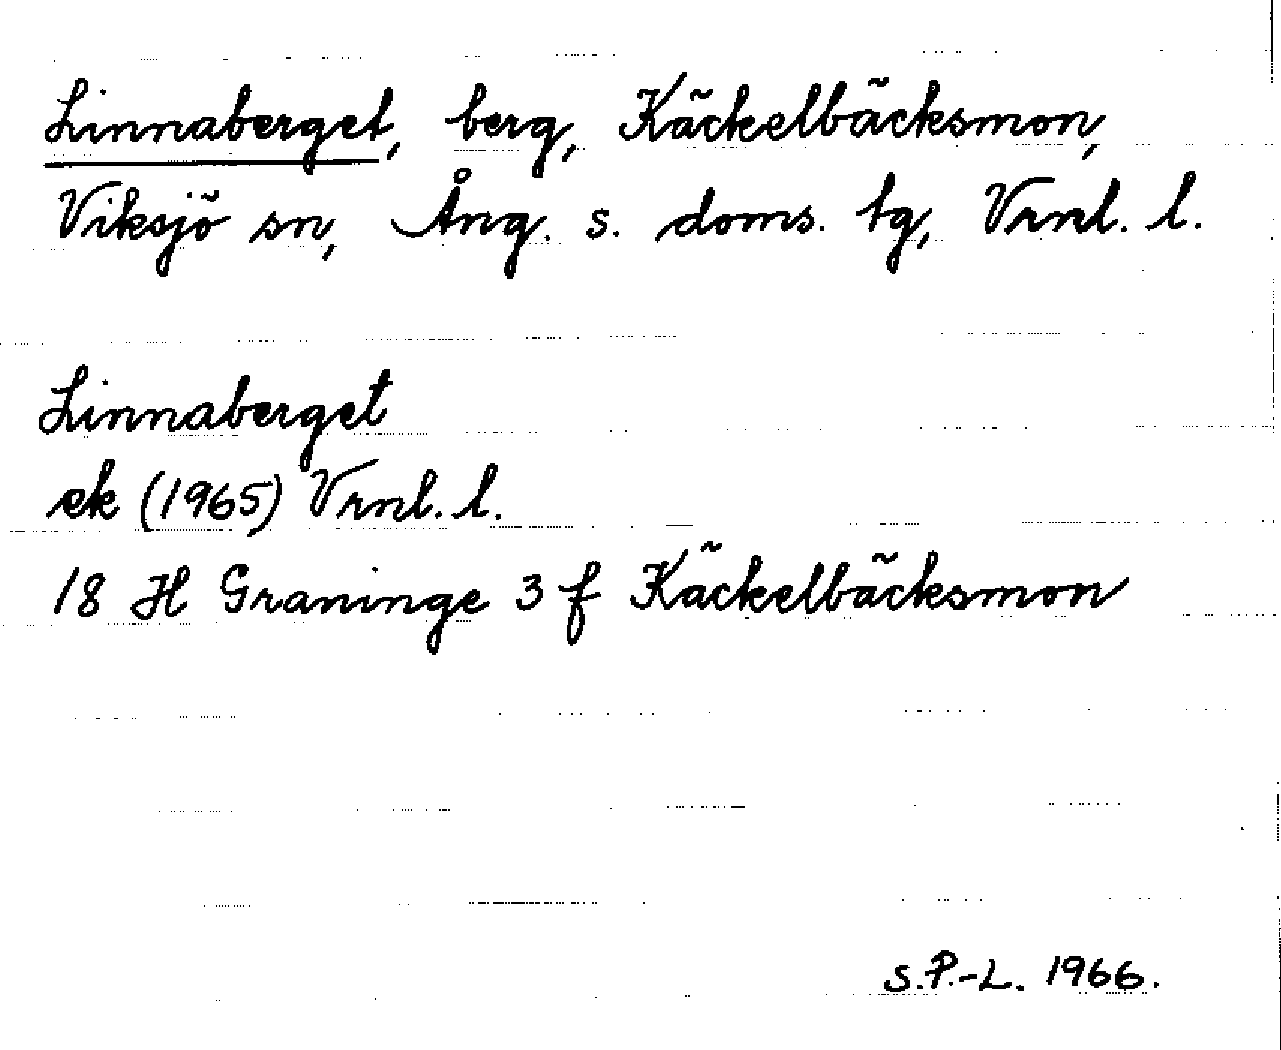 Linnaberget, berg, Käckelbäcksmon,
Viksjö sn, Ång. s. doms. tg, Vrnl. l.
Linnaberget
ek (1965) Vrnl. l.
18 H Graninge 3 f Käckelbäcksmon
S.P.-L. 1966.